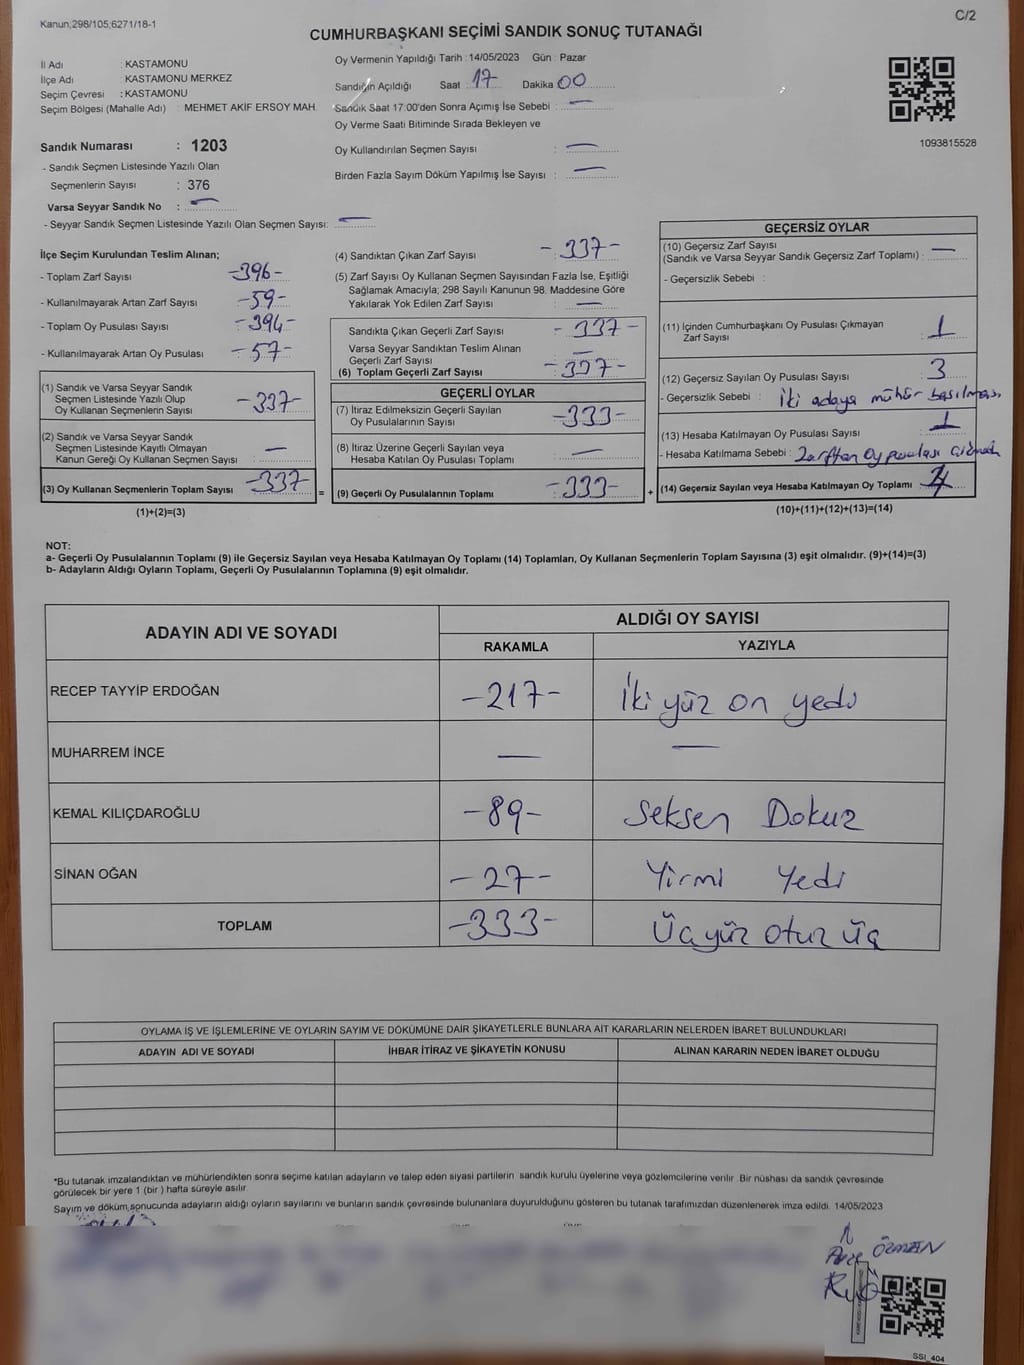 Kanun;298/105;6271/18-1
C/2
CUMHURBAŞKANI SEÇİMİ SANDIK SONUÇ TUTANAĞI
İl Adı : KASTAMONU
İlçe Adı : KASTAMONU MERKEZ
Seçim Çevresi : KASTAMONU
Seçim Bölgesi (Mahalle Adı) : MEHMET AKİF ERSOY MAH.
Oy Vermenin Yapıldığı Tarih :14/05/2023 Gün : Pazar
Sandığın Açıldığı Saat 17 Dakika 00
Sandık Saat 17:00'den Sonra Açımış İse Sebebi : —
Oy Verme Saati Bitiminde Sırada Bekleyen ve
Oy Kullandırılan Seçmen Sayısı : —
Birden Fazla Sayım Döküm Yapılmış İse Sayısı : —
1093815528
Sandık Numarası : 1203
- Sandık Seçmen Listesinde Yazılı Olan
Seçmenlerin Sayısı : 376
Varsa Seyyar Sandık No : —
- Seyyar Sandık Seçmen Listesinde Yazılı Olan Seçmen Sayısı: —
İlçe Seçim Kurulundan Teslim Alınan;
- Toplam Zarf Sayısı -396-
- Kullanılmayarak Artan Zarf Sayısı -59-
- Toplam Oy Pusulası Sayısı -394-
- Kullanılmayarak Artan Oy Pusulası -57-
(1) Sandık ve Varsa Seyyar Sandık
Seçmen Listesinde Yazılı Olup
Oy Kullanan Seçmenlerin Sayısı -337-
(2) Sandık ve Varsa Seyyar Sandık
Seçmen Listesinde Kayıtlı Olmayan
Kanun Gereği Oy Kullanan Seçmen Sayısı : —
(3) Oy Kullanan Seçmenlerin Toplam Sayısı -337-
(1)+(2)=(3)
(4) Sandıktan Çıkan Zarf Sayısı -337-
(5) Zarf Sayısı Oy Kullanan Seçmen Sayısından Fazla İse, Eşitliği
Sağlamak Amacıyla; 298 Sayılı Kanunun 98. Maddesine Göre
Yakılarak Yok Edilen Zarf Sayısı : —
Sandıkta Çıkan Geçerli Zarf Sayısı -337-
Varsa Seyyar Sandıktan Teslim Alınan
Geçerli Zarf Sayısı —
(6) Toplam Geçerli Zarf Sayısı -337-
GEÇERLİ OYLAR
(7) İtiraz Edilmeksizin Geçerli Sayılan
Oy Pusulalarının Sayısı -333-
(8) İtiraz Üzerine Geçerli Sayılan veya
Hesaba Katılan Oy Pusulası Toplamı —
= (9) Geçerli Oy Pusulalarının Toplamı -333- +
GEÇERSİZ OYLAR
(10) Geçersiz Zarf Sayısı
(Sandık ve Varsa Seyyar Sandık Geçersiz Zarf Toplamı) : —
- Geçersizlik Sebebi :
(11) İçinden Cumhurbaşkanı Oy Pusulası Çıkmayan
Zarf Sayısı : 1
(12) Geçersiz Sayılan Oy Pusulası Sayısı : 3
- Geçersizlik Sebebi : İki adaya mühür basılması
(13) Hesaba Katılmayan Oy Pusulası Sayısı : 1
- Hesaba Katılmama Sebebi : Zarftan Oy pusulası
(14) Geçersiz Sayılan veya Hesaba Katılmayan Oy Toplamı 4
(10)+(11)+(12)+(13)=(14)
NOT:
a- Geçerli Oy Pusulalarının Toplamı (9) ile Geçersiz Sayılan veya Hesaba Katılmayan Oy Toplamı (14) Toplamları, Oy Kullanan Seçmenlerin Toplam Sayısına (3) eşit olmalıdır. (9)+(14)=(3)
b- Adayların Aldığı Oyların Toplamı, Geçerli Oy Pusulalarının Toplamına (9) eşit olmalıdır.
ADAYIN ADI VE SOYADI
ALDIĞI OY SAYISI
RAKAMLA YAZIYLA
RECEP TAYYİP ERDOĞAN -217- İki yüz on yedi
MUHARREM İNCE — —
KEMAL KILIÇDAROĞLU -89- Seksen Dokuz
SİNAN OĞAN -27- Yirmi Yedi
TOPLAM -333- Üçyüz otuz üç
OYLAMA İŞ VE İŞLEMLERİNE VE OYLARIN SAYIM VE DÖKÜMÜNE DAİR ŞİKAYETLERLE BUNLARA AİT KARARLARIN NELERDEN İBARET BULUNDUKLARI
ADAYIN ADI VE SOYADI İHBAR İTİRAZ VE ŞİKAYETİN KONUSU ALINAN KARARIN NEDEN İBARET OLDUĞU
*Bu tutanak imzalandıktan ve mühürlendikten sonra seçime katılan adayların ve talep eden siyasi partilerin sandık kurulu üyelerine veya gözlemcilerine verilir. Bir nüshası da sandık çevresinde
görülecek bir yere 1 (bir ) hafta süreyle asılır.
Sayım ve döküm sonucunda adayların aldığı oyların sayılarını ve bunların sandık çevresinde bulunanlara duyurulduğunu gösteren bu tutanak tarafımızdan düzenlenerek imza edildi. 14/05/2023
ÖZMEN
SSI_404